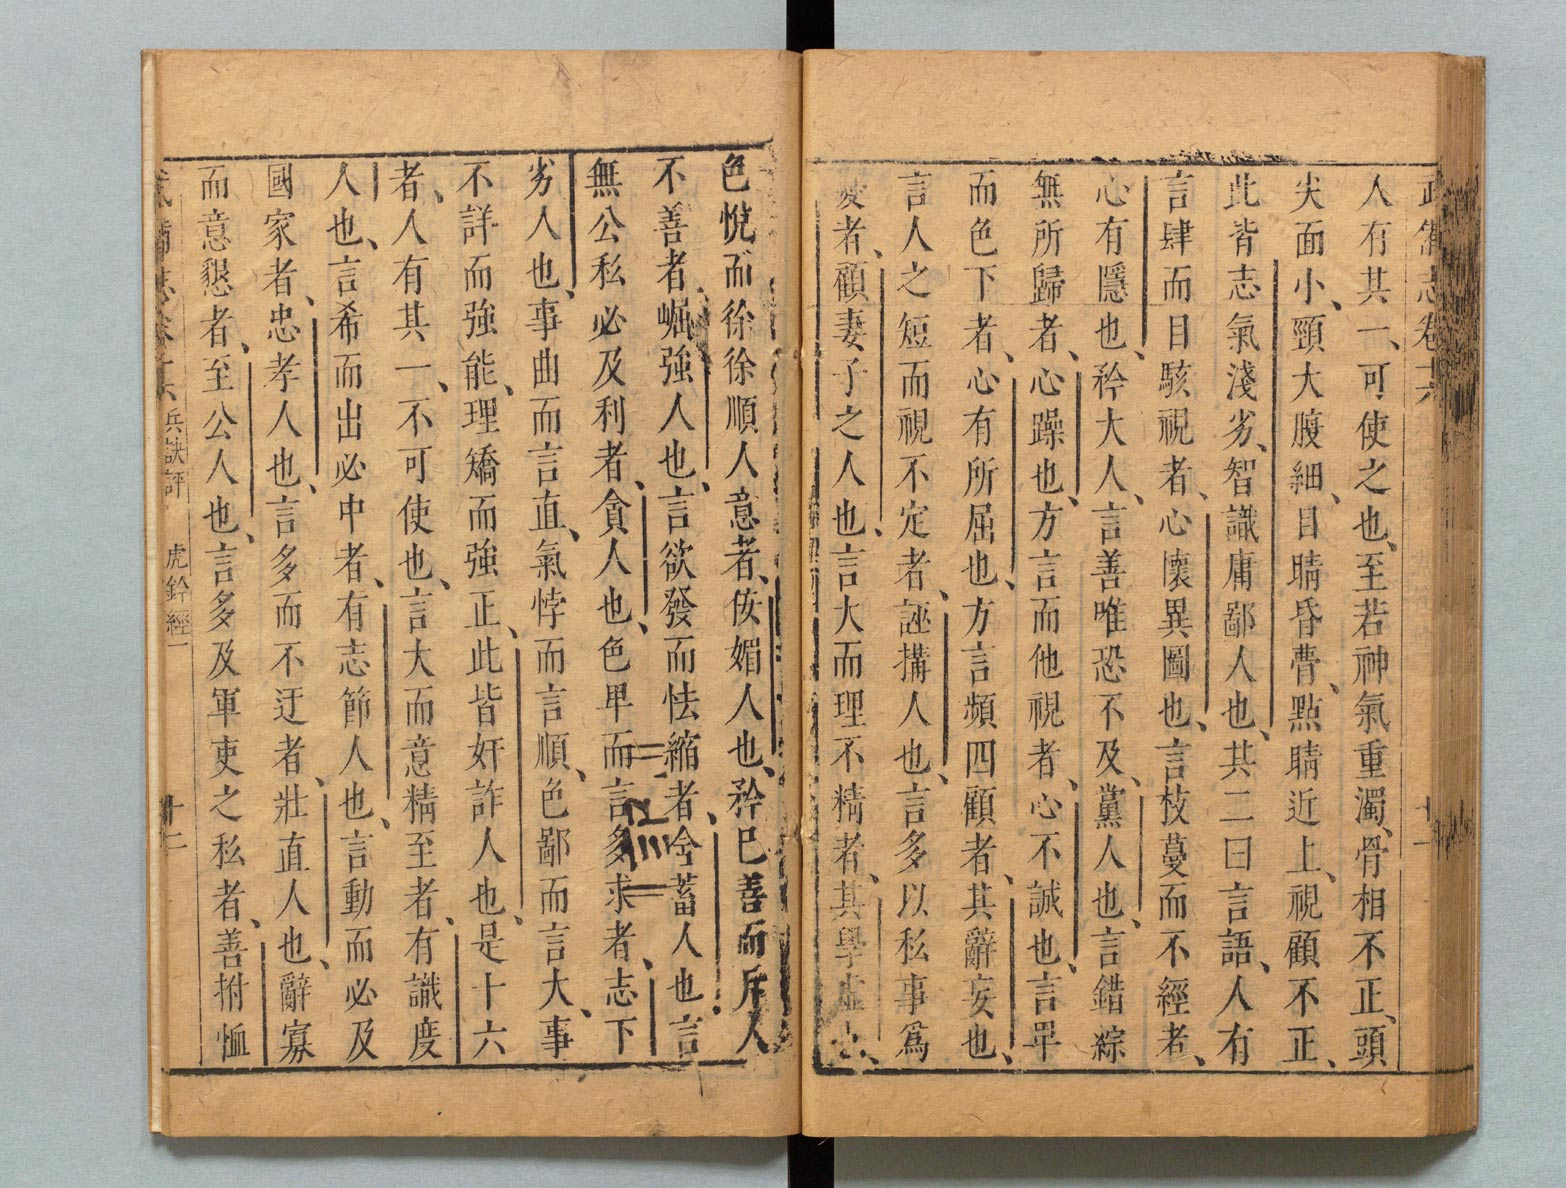 武備志卷十六
人有其一、可使之也、至若神氣重濁、骨相不正、頭
尖面小、頸大腹細、目睛昏瞢、點睛近上、視顧不正、
此皆志氣淺劣、智識庸鄙人也、其二曰言語、人有
言肆而目駭視者、心懷異圖也、言枝蔓而不經者、
心有隱也、矜大人、言善唯恐不及、黨人也、言錯綜
無所歸者、心躁也、方言而他視者、心不誠也、言畢
而色下者、心有所屈也、方言頻四顧者、其辭妄也、
言人之短而視不定者、誣搆人也、言多以私事爲
憂者、顧妻子之人也、言大而理不精者、其學虛
色悅而徐徐順人意者、佞媚人也、矜已善而斥人
不善者、崛強人也、言欲發而怯縮者、含蓄人也、言
無公私必及利者、貪人也、色卑而言多求者、志下
劣人也、事曲而言直、氣悖而言順、色鄙而言大、事
不詳而強能、理矯而強正、此皆奸詐人也、是十六
者、人有其一、不可使也、言大而意精至者、有識度
人也、言希而出必中者、有志節人也、言動而必及
國家者、忠孝人也、言多而不迂者、壯直人也、辭寡
而意懇者、至公人也、言多及軍吏之私者、善拊恤
武備志卷十六 兵訣評 虎鈐經一 十二